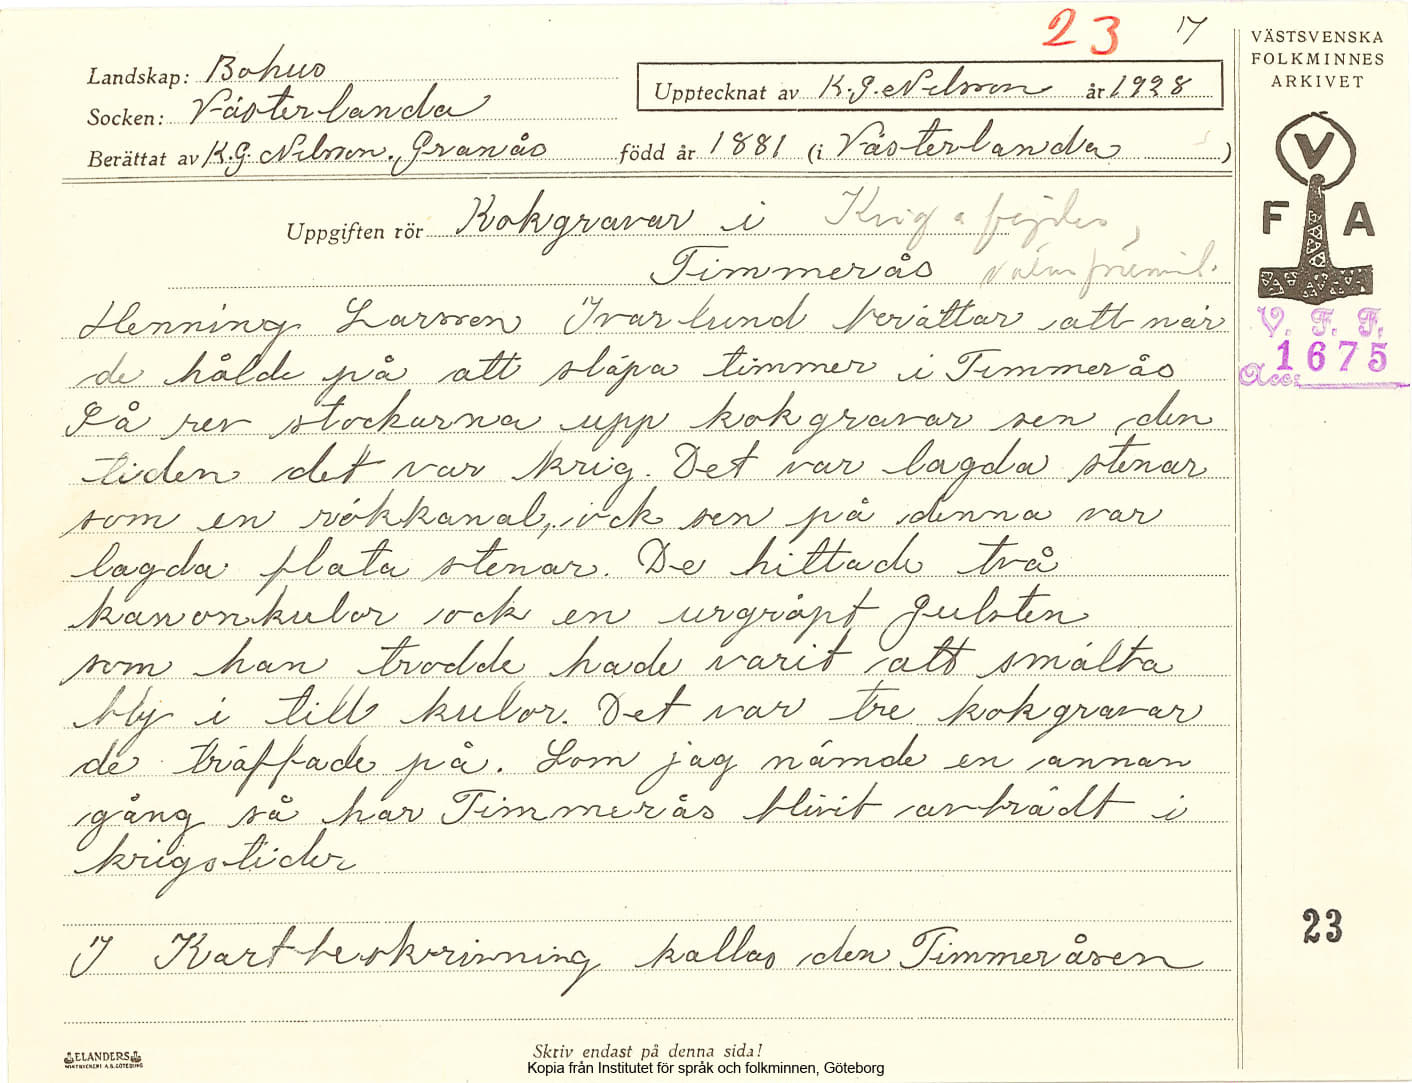 23 17
VÄSTSVENSKA
FOLKMINNES
ARKIVET
Landskap: Bohus
Upptecknat av K.G. Nilsson år 1928
Socken: Västerlanda
Berättat av K.G. Nilsson. Granås född år 1881 (i Västerlanda )
V
F A
Uppgiften rör Kokgravar i Krig & fejder,
Timmerås
Henning Larsson Ivarlund berättar att när
de hålde på att släpa timmer i Timmerås
Så rev stockarna upp kokgravar sen den
tiden det var krig. Det var lagda stenar
som en rökkanal, ock sen på denna var
lagda flata stenar. De hittade två
kanonkulor ock en urgröpt Julsten
som han trodde hade varit att smälta
bly i till kulor. Det var tre kokgravar
de träffade på. Som jag nämde en annan
gång så har Timmerås blivit avbrädt i
krigstider
I Kartbeskrivning kallas den Timmeråsen
V. F. F.
Acc: 1675
23
ELANDERS
Skriv endast på denna sida!
Kopia från Institutet för språk och folkminnen, Göteborg